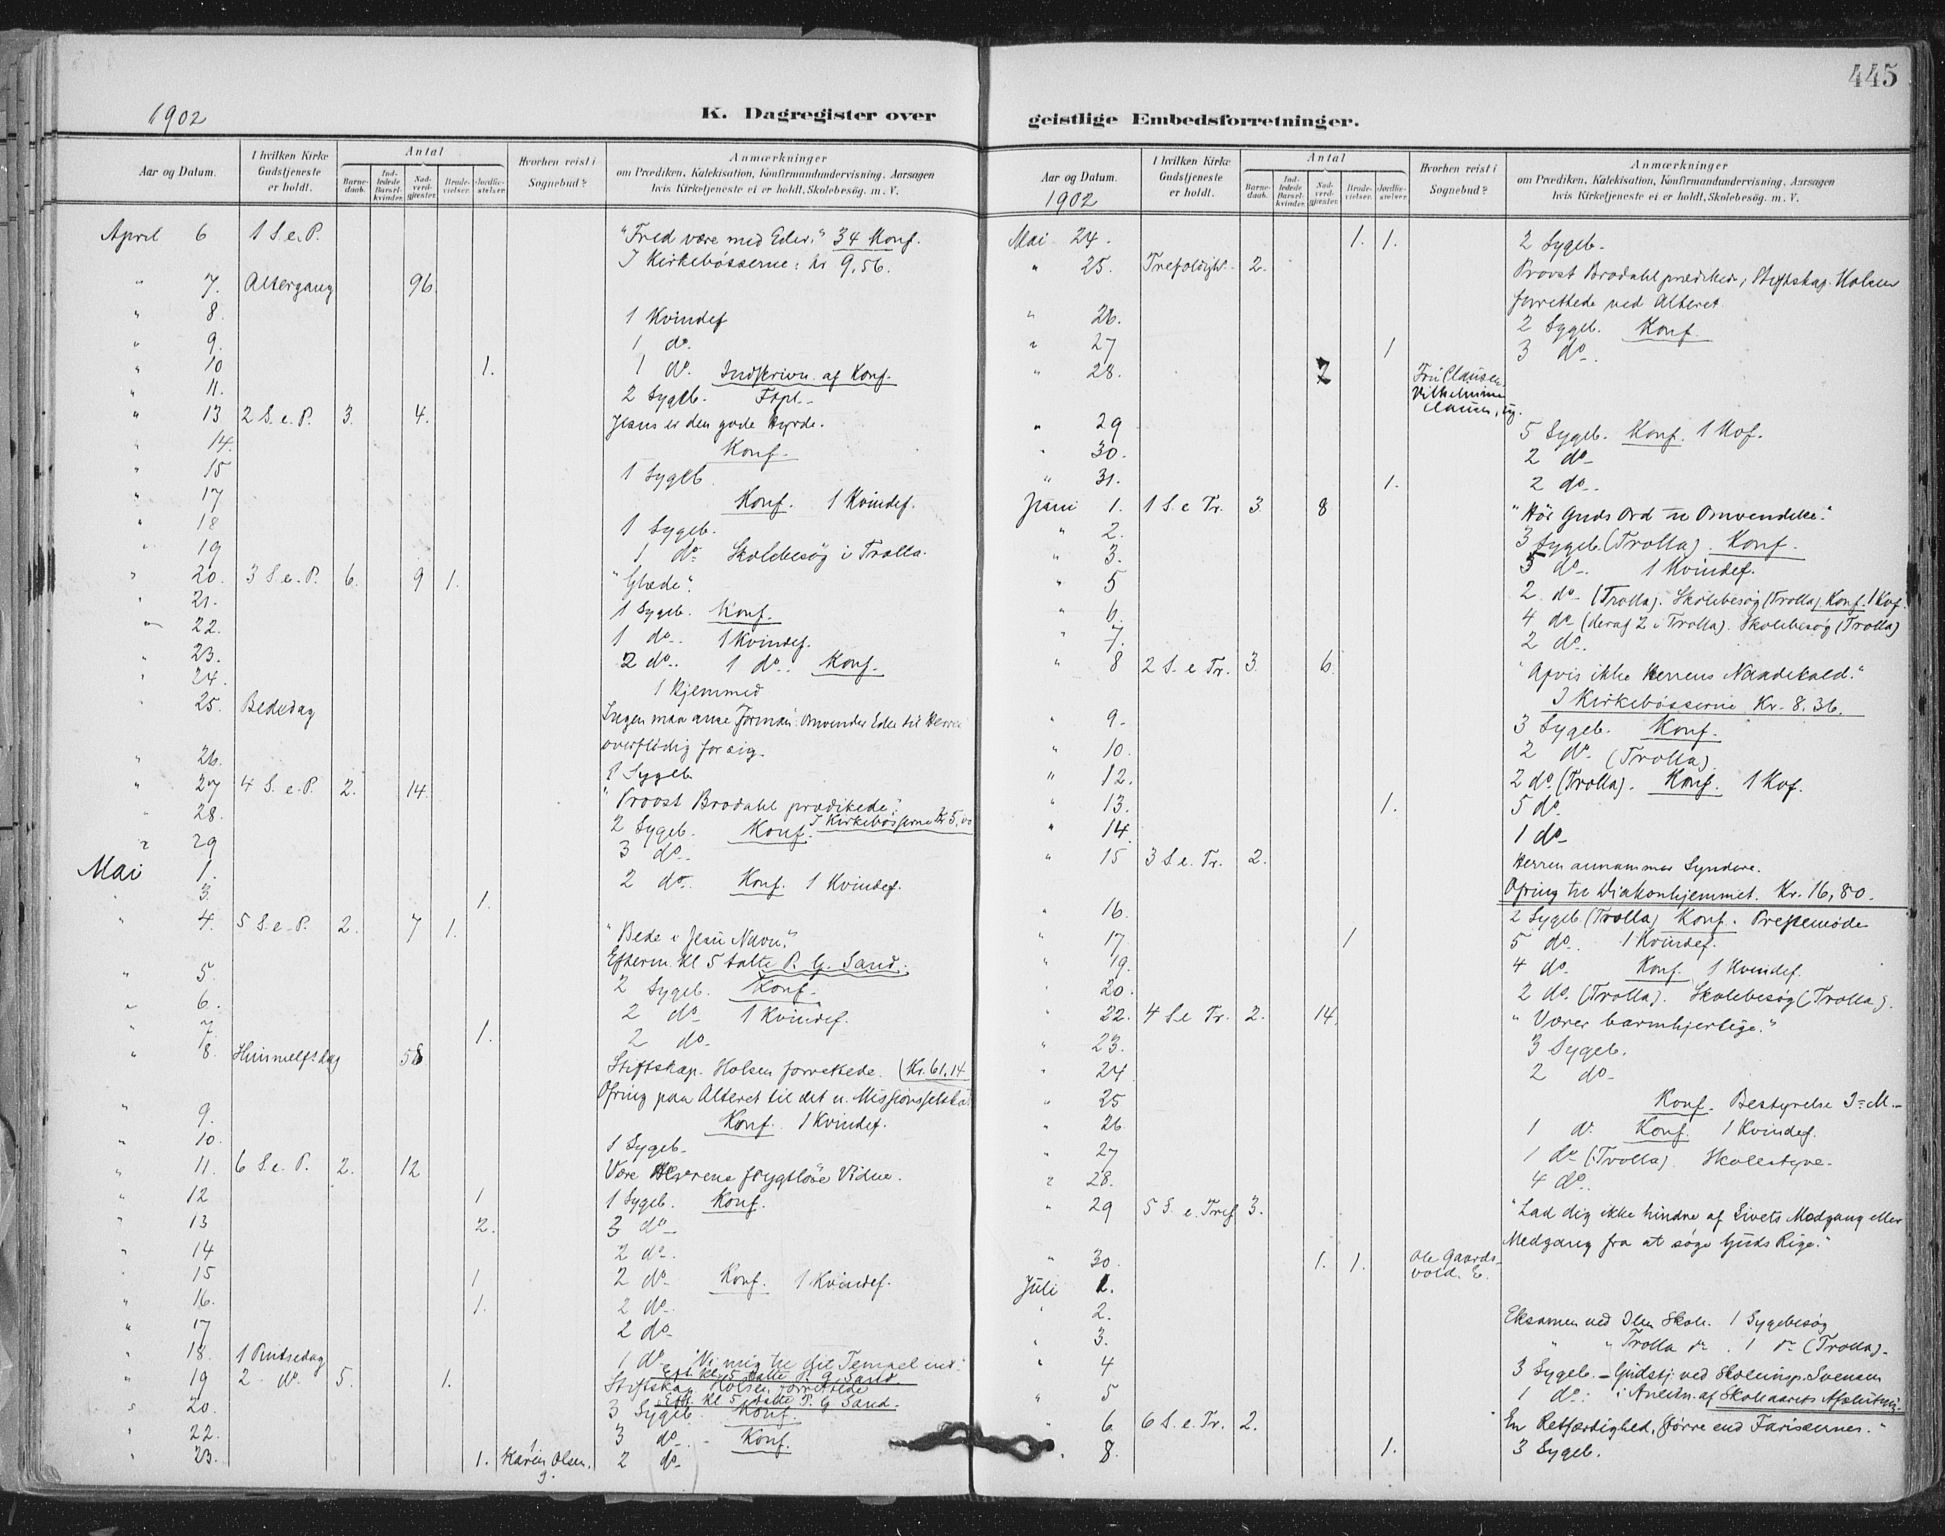 445
1902
K. Dagregister over
geistlige Embedsforretninger.
Aar og Datum.
I hvilken Kirke Gudstjeneste er holdt.
Antal
Barnedaab.
Indledede Barselkvinder.
Nadverdgjæster.
Brudevielser.
Jordfæstelser.
Hvorhen reist i Sognebud?
Anmærkninger
om Prædiken, Katekisation, Konfirmandundervisning, Aarsagen
hvis Kirketjeneste ei er holdt, Skolebesøg. m. V.
April 6 1 S. e. P. "Fred være med Eder." 34 Konf.
I Kirkebøsserne: kr 9,56.
" 7. Altergang 96
" 8. 1 Kvindef
" 9. 1 do.
" 10 1. 1 do. Indskrivn. af Konf.
" 11. 2 Sygeb.
" 13 2 S. e. P. 3. 4. Jesus er den gode Hyrde.
" 14. Konf.
" 15 1 Sygeb
" 17 Konf. 1 Kvindef.
" 18 1 Sygeb.
" 19 1 do Skolebesøg i Trolla.
" 20. 3 S. e. P. 6. 9 1. "Glæde".
" 21. 1 Sygeb. Konf.
" 22. 1 do. 1 Kvindef.
" 23. 2 do. 1 do. Konf.
" 24. 1 Hjemmed
" 25. Bededag Ingen maa anse Forman: Omvender Eder til Herren
overflödig for sig.
" 26. 1 Sygeb
" 27 4 S. e. P. 2. 14. "Provst Brodahl prædikede".
I Kirkebösserne Kr 5,00
" 28. 2 Sygeb. Konf.
" 29 3 do
Mai 1. 2 do. Konf. 1 Kvindef.
" 3. 1.
" 4. 5 S. e. P. 2. 7 1. "Bede i Jesu Navn."
Efterm. kl 5 talte P. G. Sand.
" 5. 2 Sygeb. Konf.
" 6. 2 do 1 Kvindef.
" 7. 1. 2 do
" 8. Himmelfsdag 58 Stiftskap. Holsen forrettede. (Kr. 61,14
Ofring paa Alteret til det n. Missionsselskab
" 9. Konf. 1 Kvindef.
" 10. 1 Sygeb.
" 11. 6 S. e. P. 2. 12 Vær Herrens frygtløse Vidne.
" 12 1 1 Sygeb. Konf.
" 13 2. 3 do
" 14 2 do.
" 15 1 2 do Konf. 1 Kvindef.
" 16. 1. 2 do
" 17 2 do
" 18. 1 Pintsedag 1 do "Vi mig til dit Tempel ind."
Eft. kl. 5 talte P. G Sand.
" 19 2. do. 5. 1. Stiftskap Holsen forrettede
Eft. kl 5 talte P. G Sand.
" 20. 3 Sygeb. Konf.
" 22. 3 do Konf.
" 23. 1. Karen Olsen, 2 do
Aar og Datum.
1902
I hvilken Kirke Gudstjeneste er holdt.
Antal
Barnedaab.
Indledede Barselkvinder.
Nadverdgjæster.
Brudevielser.
Jordfæstelser.
Hvorhen reist i Sognebud?
Anmærkninger
om Prædiken, Katekisation, Konfirmandundervisning, Aarsagen
hvis Kirketjeneste ei er holdt, Skolebesøg. m. V.
Mai 24. 1. 1. 2 Sygeb.
" 25. Trefoldigh. 2. Provst Brodahl prædikede; Stiftskap. Holsen
forrettede ved Alteret.
" 26. 2 Sygeb. Konf.
" 27 1 3 do.
" 28. 2 Fru Clausen
Vilhelmine
Clausen,
" 29 5 Sygeb. Konf. 1 Kof.
" 30. 2 do
" 31. 1. 2 do.
Juni 1. 1 S. e Tr. 3 8 "Hör Guds Ord til Omvendelse."
" 2. 3 Sygeb. (Trolla). Konf.
" 3. 3 do. 1 Kvindef.
" 5 2. do (Trolla). Skolebesøg (Trolla) Konf. 1 Kof.
" 6. 4 do (deraf 2 i Trolla). Skolebesøg (Trolla)
" 7. 2 do.
" 8 2 S. e Tr. 3. 6. "Afvis ikke Herrens Naadekald."
I Kirkebösserne Kr. 8.36.
" 9. 3 Sygeb. Konf.
" 10. 2 do (Trolla).
" 12. 2 do (Trolla). Konf. 1 Kof.
" 13. 1. 5 do.
" 14. 1 do
" 15 3 S. e. Tr. 2. Herren annammer Syndere.
Ofring til Diakonhjemmet. Kr. 16,80.
" 16. 2 Sygeb (Trolla) Konf. Prestemöde
" 17. 1 5 do. 1 Kvindef.
" 19. 4 do Konf. 1 Kvindef.
" 20. 2 do. (Trolla). Skolebesøg (Trolla).
" 22. 4 S. e Tr. 2. 14. "Værer barmhjertige."
" 23. 3 Sygeb.
" 24 2 do
" 25 Konf. Bestyrelse I=M.
" 26 1 do Konf. 1 Kvindef.
" 27 1 do (Trolla). Skolestyre.
" 28. 4 do.
" 29 5 S. e. Tref 3. "Lad dig ikke hindre af Livets Modgang eller
Medgang fra at søge Guds Rige."
" 30. 1. 1. Ole Gaards-
vold.
Juli 1.
" 2. Eksamen ved Ilen Skole. 1 Sygebesøg
" 3. " " Trolla do. 1 do (Trolla).
" 4 3 Sygeb. Gudstj. ved Skoleinsp. Svensen
" 5 1 do: i Anledn. af Skoleaarets Afslutning
" 6. 6 S. e. Tr. 2. "En Retfærdighed, större end Farisæernes."
" 8. 1. 3 Sygeb.